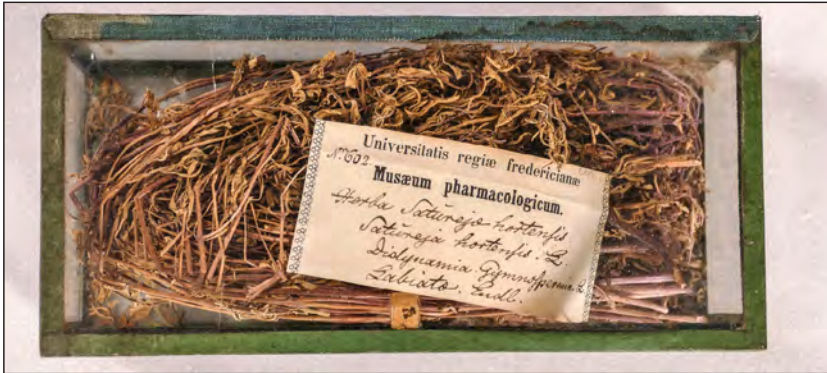 Universitatis regiæ fredericianæ
N. 602.
Musæum pharmacologicum.
Herba Saturejæ hortensis.
Satureja hortensis. L.
Didynamia Gymnosperm. L.
Labiatæ.